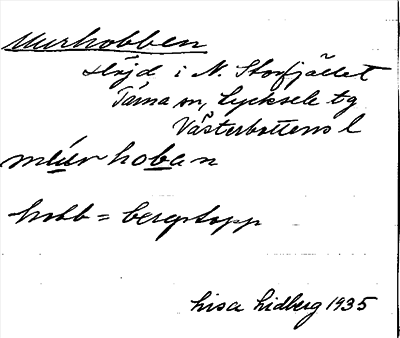 Murhobben
Höjd i N. Storfjället
Tärna sn, Lycksele tg
Västerbottens l
mūrhoban
hobb = bergstopp
Lisa Lidberg 1935